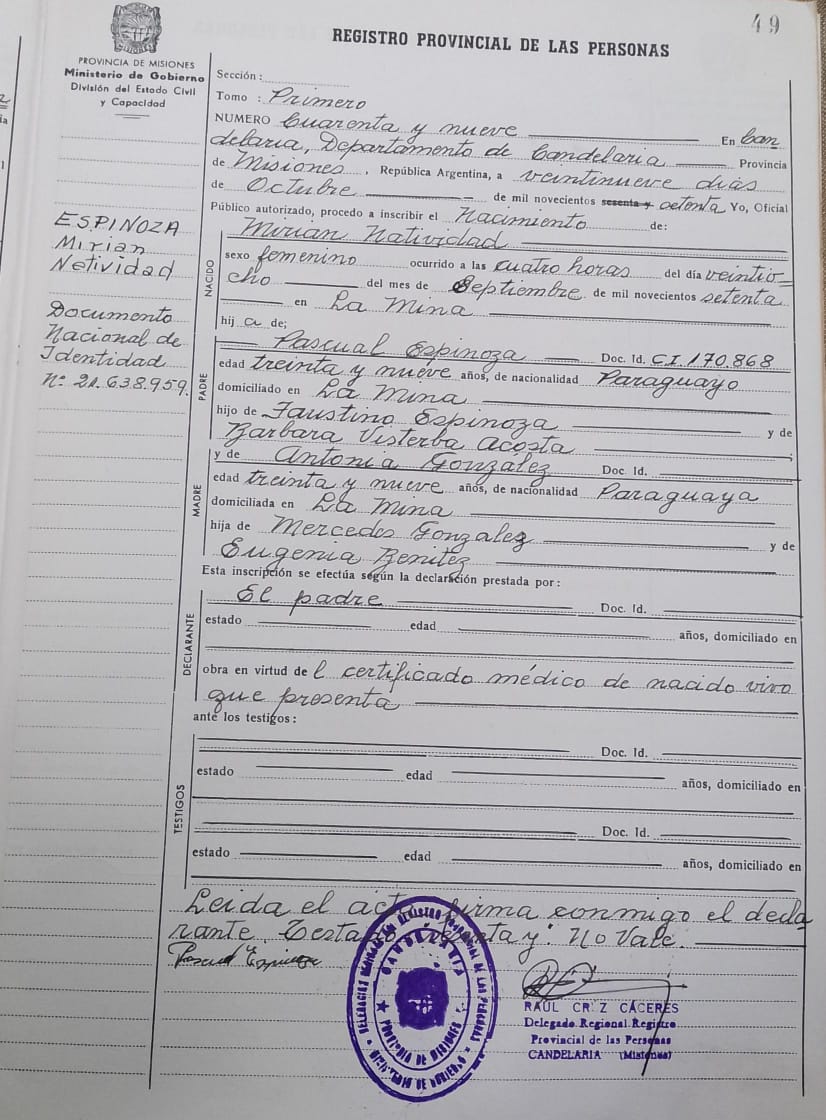 49
REGISTRO PROVINCIAL DE LAS PERSONAS
PROVINCIA DE MISIONES
Ministerio de Gobierno
División del Estado Civil
y Capacidad
ESPINOZA
Mirian
Natividad
Documento
Nacional de
Identidad
Nº 21.638.959.
Sección:
Tomo : Primero
NUMERO Cuarenta y nueve En Can
delaria, Departamento de Candelaria Provincia
de Misiones, República Argentina, a veintinueve dias
de Octubre de mil novecientos sesenta y setenta Yo, Oficial
Público autorizado, procedo a inscribir el Nacimiento de:
NACIDO
Mirian Natividad
sexo femenino ocurrido a las cuatro horas del día veintio
cho del mes de Septiembre de mil novecientos setenta
en La Mina
hij a de;
PADRE
Pascual Espinoza Doc. Id. CI.170.868
edad treinta y nueve años, de nacionalidad Paraguayo
domiciliado en La Mina
hijo de Faustino Espinoza y de
Barbara Visterba Acosta
MADRE
y de Antonia Gonzalez Doc. Id.
edad treinta y nueve años, de nacionalidad Paraguaya
domiciliada en La Mina
hija de Mercedes Gonzalez y de
Eugenia Benitez
Esta inscripción se efectúa según la declaración prestada por:
DECLARANTE
El padre Doc. Id.
estado edad años, domiciliado en
obra en virtud de l certificado médico de nacido vivo
que presenta
ante los testigos:
TESTIGOS
Doc. Id.
estado edad años, domiciliado en
Doc. Id.
estado edad años, domiciliado en
Leida el acta firma conmigo el decla
rante. Testado y: No Vale.
Pascual Espinoza
CANDELARIA
PROVINCIA DE MISIONES
MINISTERIO DE GOBIERNO
RAUL CRUZ CACERES
Delegado Regional Registro
Provincial de las Personas
CANDELARIA (Misiones)